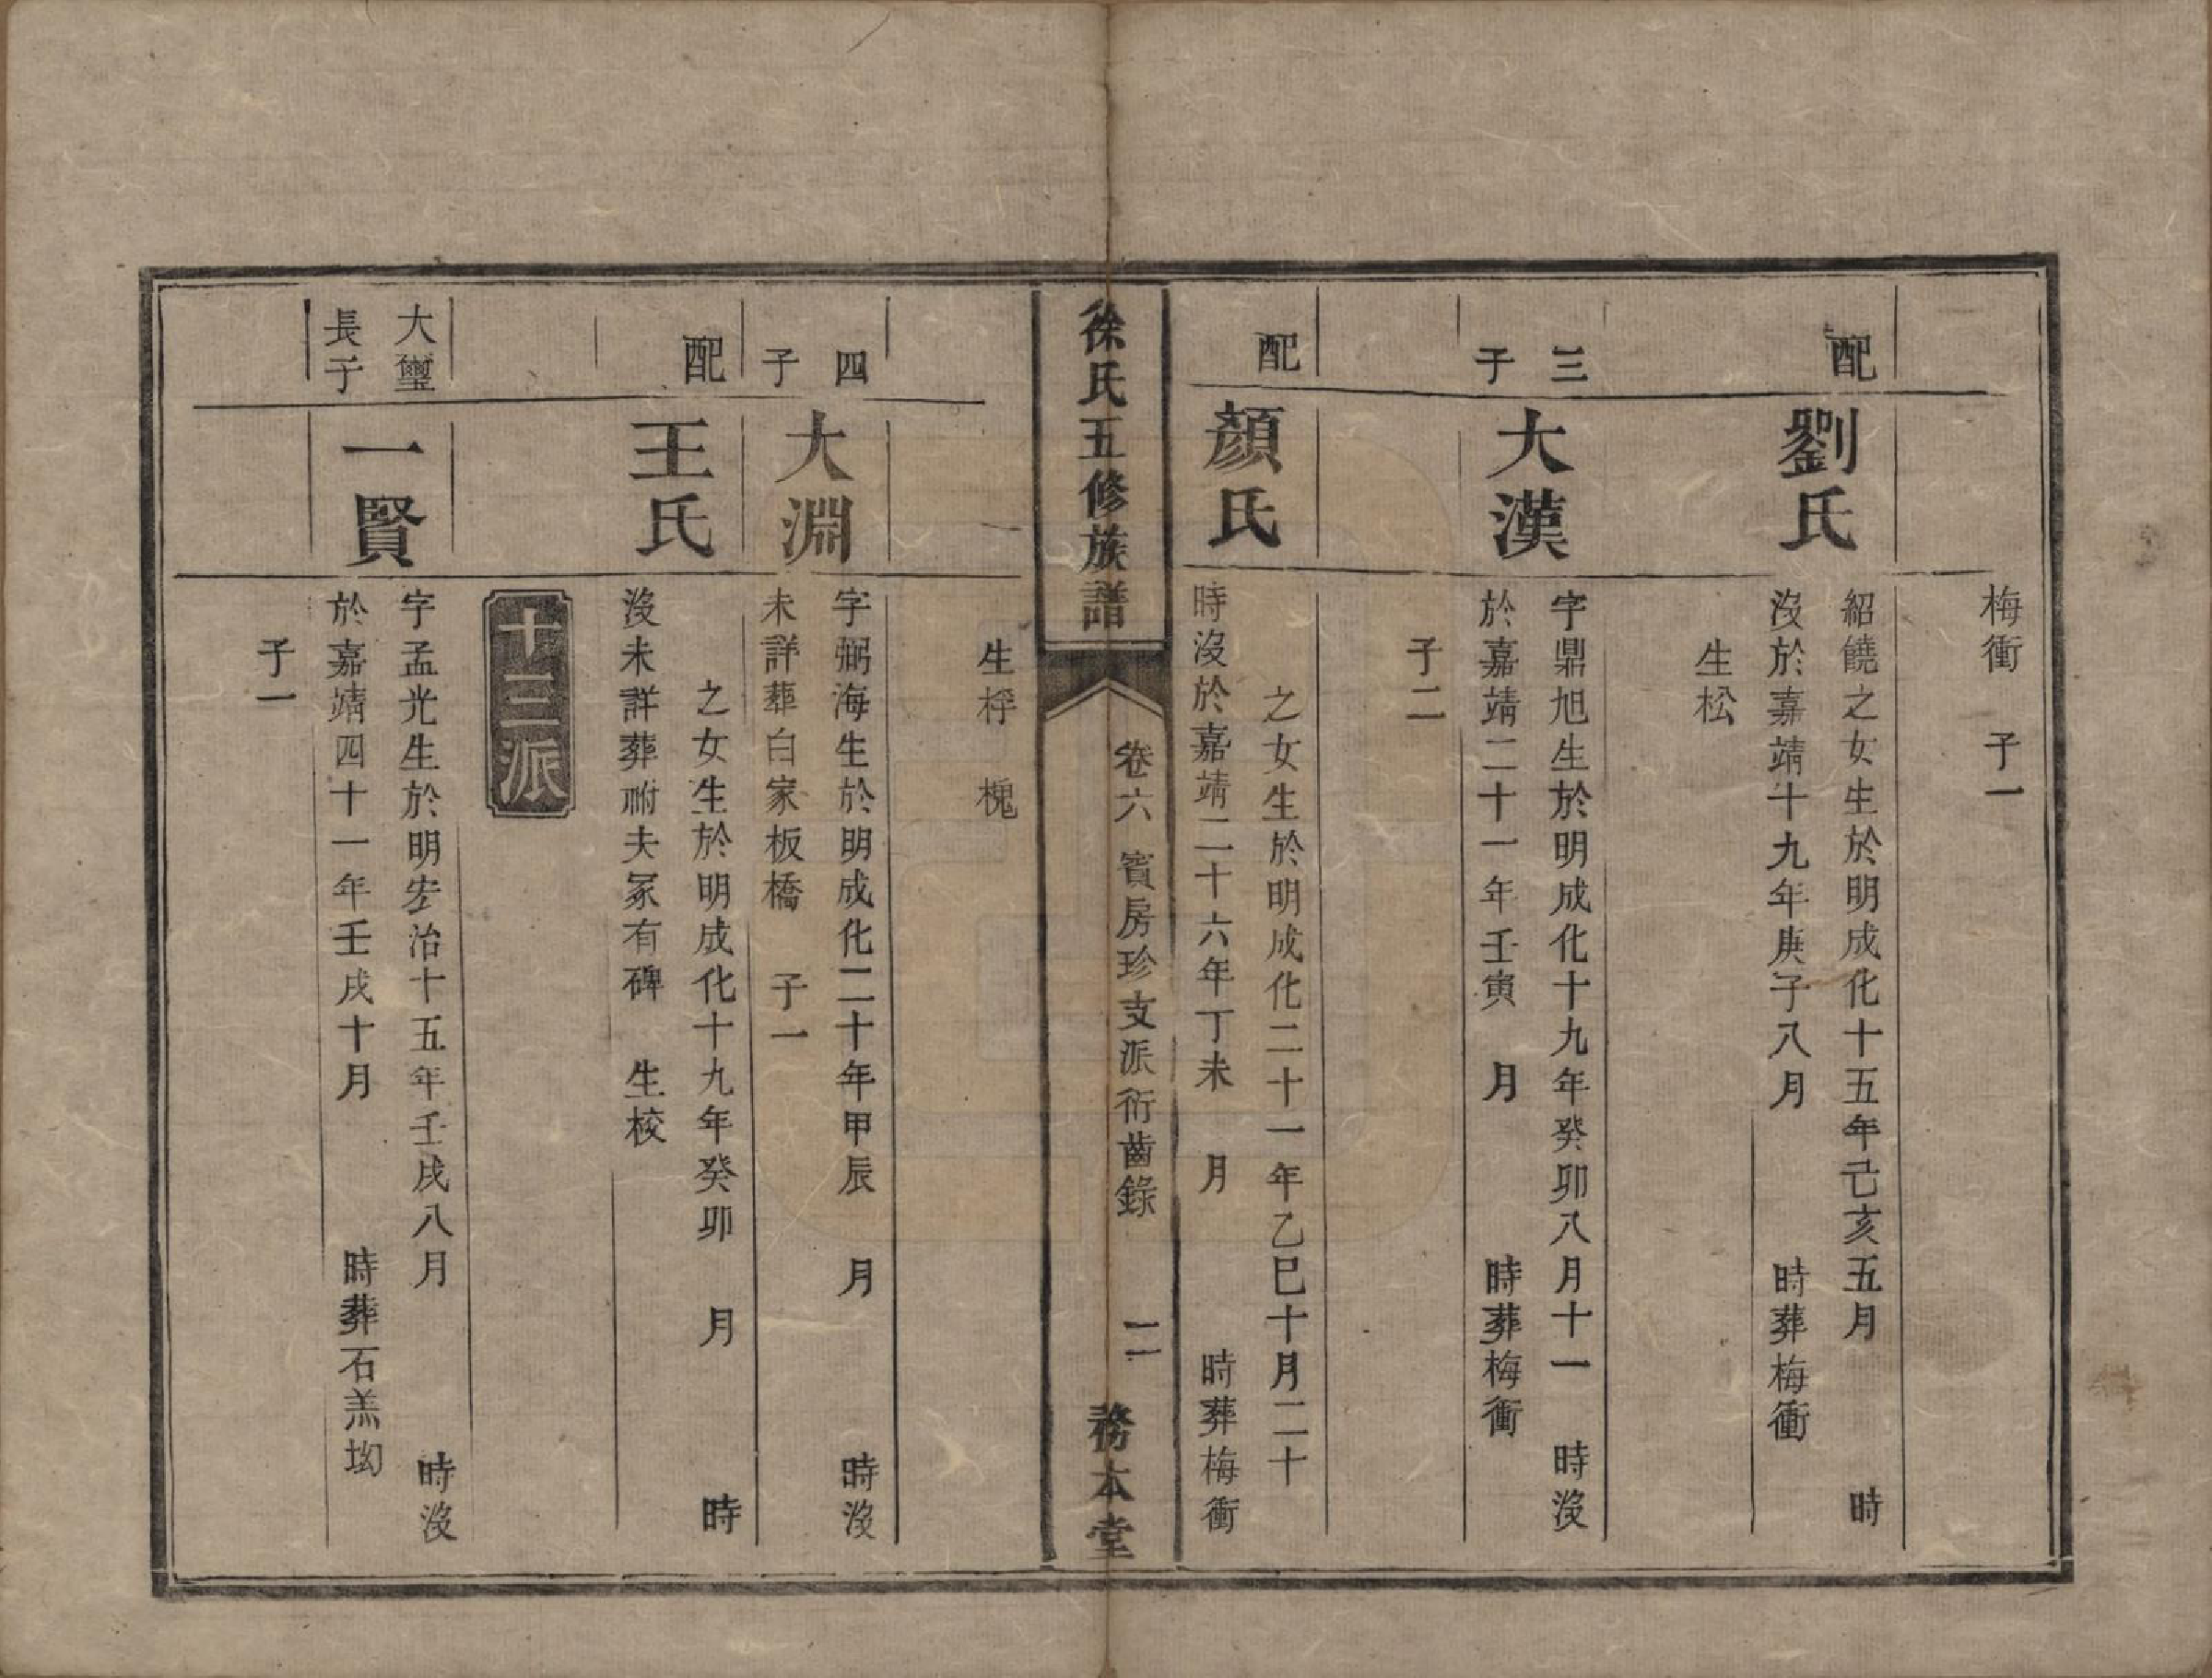 梅衝 子一
配 劉氏
紹饒之女生於明成化十五年己亥五月 時
沒於嘉靖十九年庚子八月 時葬梅衝
生松
三子 大漢
字鼎旭生於明成化十九年癸卯八月十一 時沒
於嘉靖二十一年壬寅 月 時葬梅衝
子二
配 顏氏
之女生於明成化二十一年乙巳十月二十
時沒於嘉靖二十六年丁未 月 時葬梅衝
徐氏五修族譜
卷六 賓房珍支派衍齒錄 二
務本堂
生桴 槐
四子 大淵
字弼海生於明成化二十年甲辰 月 時沒
未詳葬白家板橋 子一
配 王氏
之女生於明成化十九年癸卯 月 時
沒未詳葬祔夫冢有碑 生校
十三派
大璽長子 一賢
字孟光生於明宏治十五年壬戌八月 時沒
於嘉靖四十一年壬戌十月 時葬石羔坳
子一